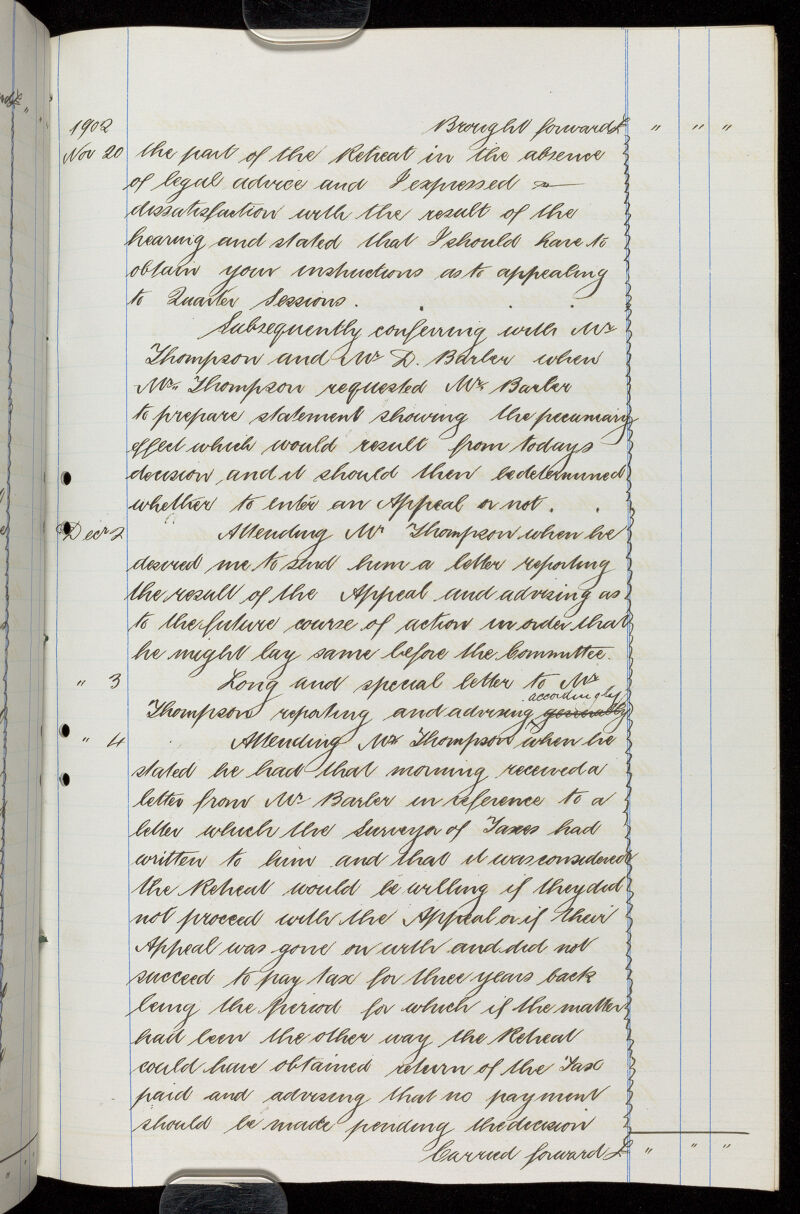 1902 Brought forward £ " " "
Nov 20 the part of the Retreat in the absence
of legal advice and I expressed
dissatisfaction with the result of the
hearing and stated that I should have to
obtain your instructions as to appealing
to Quarter Sessions.
Subsequently conferring with Mr
Thompson and Mr D. Barber when
Mr. Thompson requested Mr. Barber
to prepare statement showing the pecuniary
effect which would result from todays
decision and it should then be determined
whether to enter an Appeal or not.
Decr 2 Attending Mr Thompson when he
desired me to send him a letter reporting
the result of the Appeal and advising as
to the future course of action in order that
he might lay same before the Committee.
" 3 Long and special letter to Mr
accordingly
Thompson reporting and advising generally
" 4 Attending Mr Thompson when he
stated he had that morning received a
letter from Mr Barber in reference to a
letter which the Surveyor of Taxes had
written to him and that it was considered
the Retreat would be willing if they did
not proceed with the Appeal or if their
Appeal was gone on with and did not
succeed to pay tax for three years back
being the period for which if the matter
had been the other way the Retreat
could have obtained return of the Tax
paid and advising that no payment
should be made pending the decision
Carried forward £ " " "